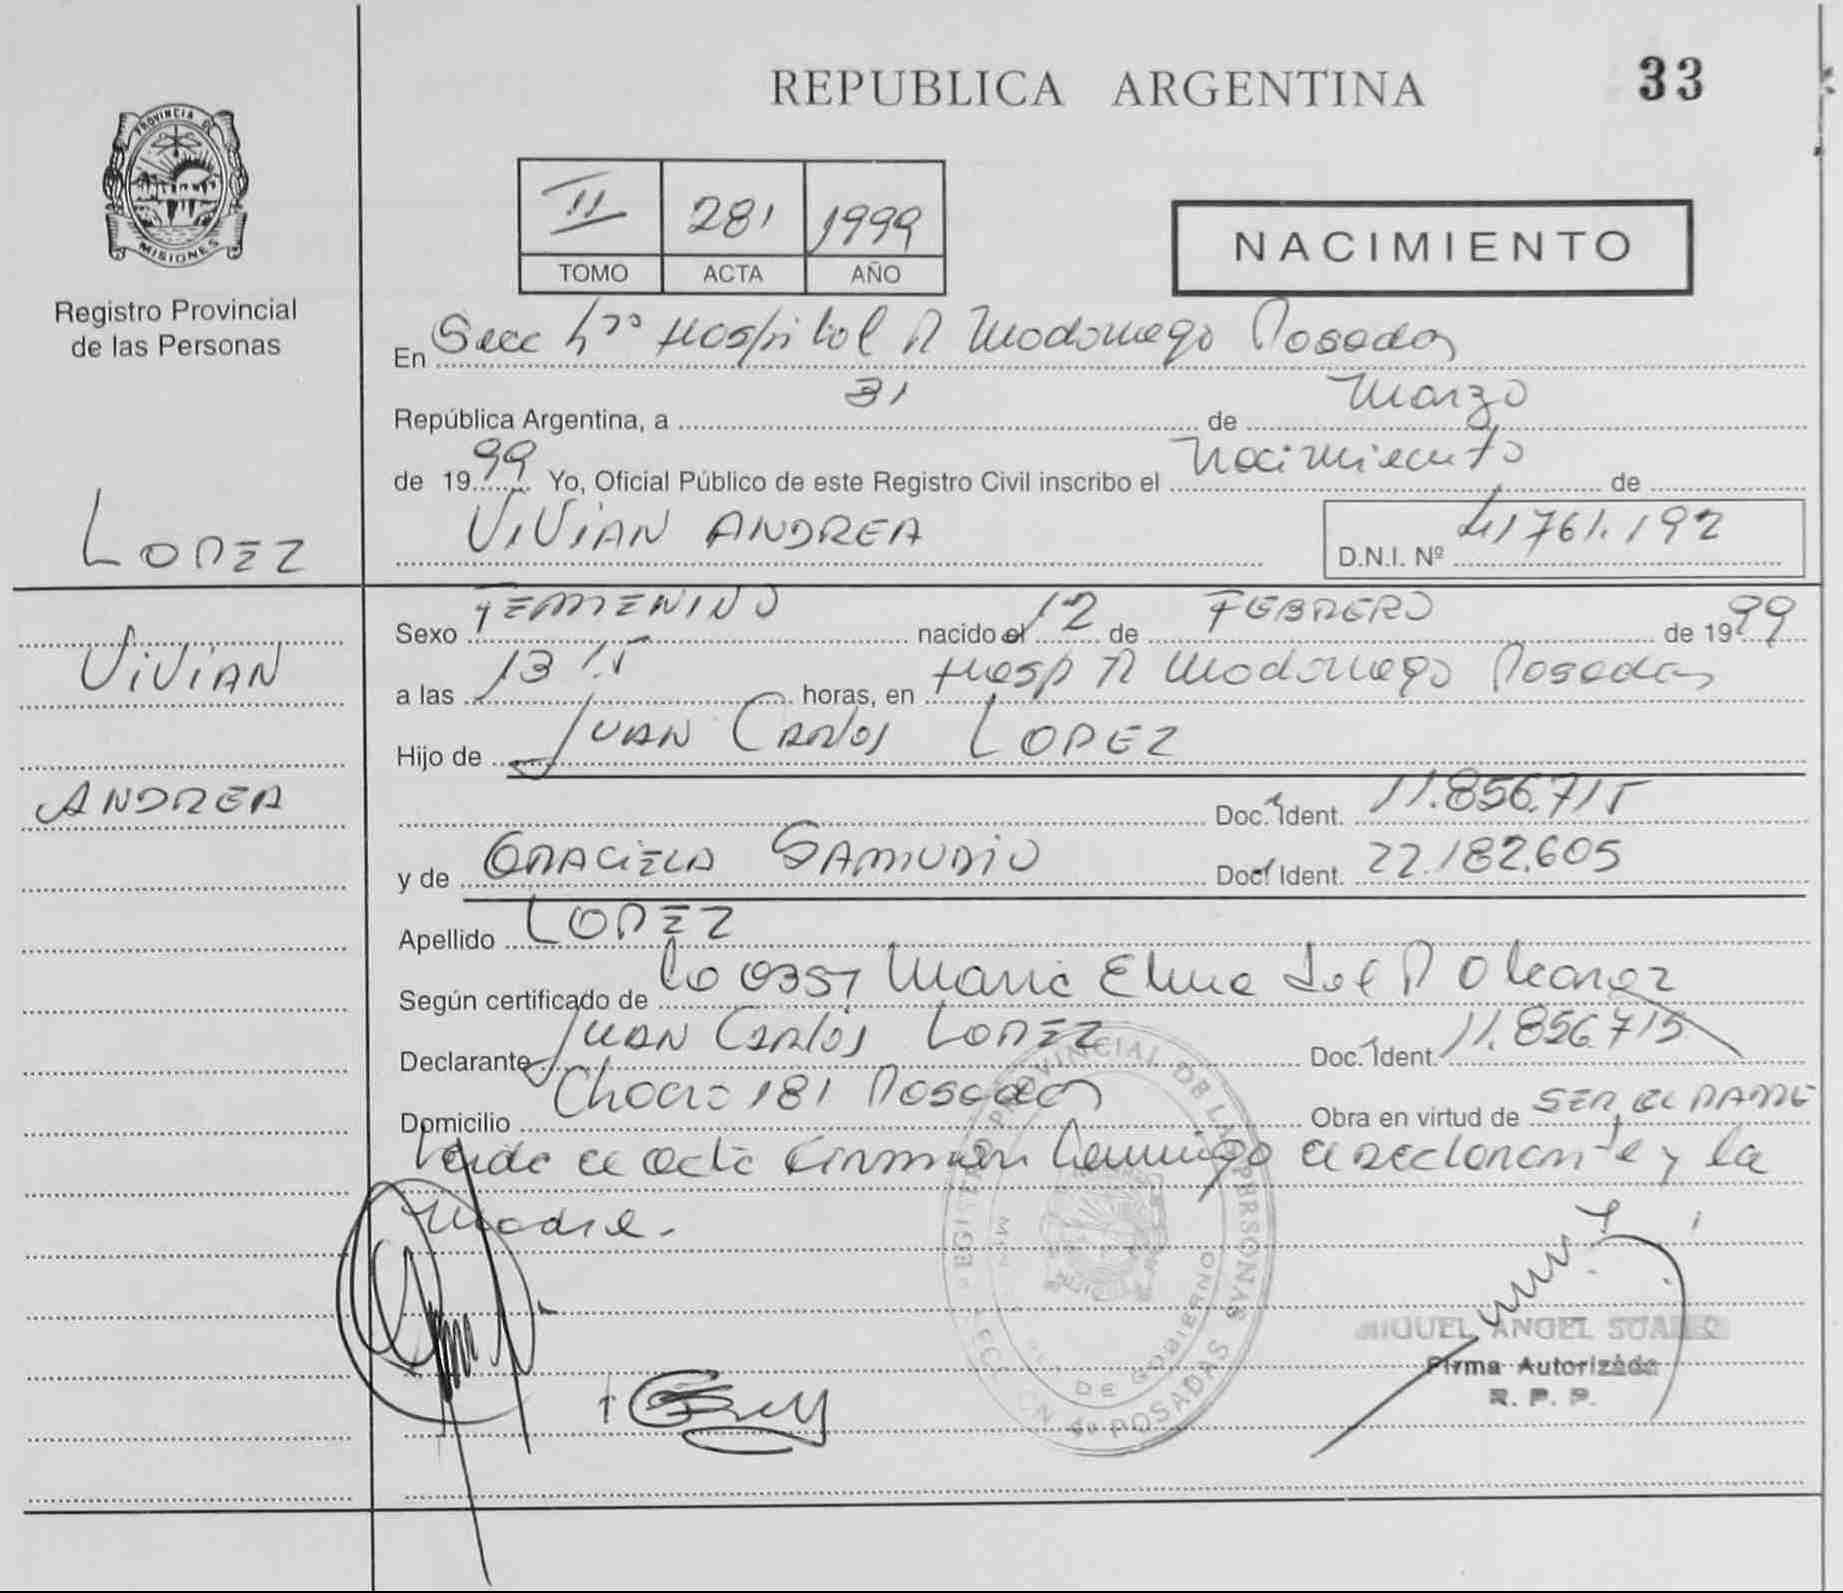 REPUBLICA ARGENTINA
33
PROVINCIA DE
MISIONES
Registro Provincial
de las Personas
II 281 1999
TOMO ACTA AÑO
NACIMIENTO
En Secc Hospital R Madariaga Posadas
República Argentina, a 31 de Marzo
de 1999 Yo, Oficial Público de este Registro Civil inscribo el Nacimiento de
VIVIAN ANDREA D.N.I. Nº 41761.192
LOPEZ
VIVIAN
ANDREA
Sexo FEMENINO nacido el 12 de FEBRERO de 1999
a las 13 15 horas, en Hosp R Madariaga Posadas
Hijo de JUAN CARLOS LOPEZ
Doc. Ident. 11.856.715
y de GRACIELA SAMUDIO Doc. Ident. 22.182.605
Apellido LOPEZ
Según certificado de Maria Elena
Declarante JUAN CARLOS LOPEZ Doc. Ident. 11.856.715
Domicilio 181 Posadas Obra en virtud de SER EL PADRE
Leida el acta firman conmigo el declarante y la
Madre.
REGISTRO PROVINCIAL DE LAS PERSONAS
DE GOBIERNO
POSADAS
MIGUEL ANGEL SUAREZ
Firma Autorizada
R. P. P.